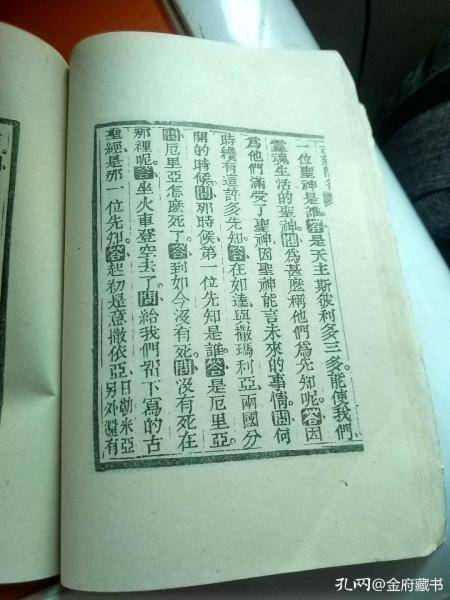 一位聖神是誰。答是天主斯彼利多三多。能使我們
靈魂生活的聖神。問爲甚麼稱他們爲先知呢。答因
爲他們滿受了聖神、因聖神能言未來的事情。問何
時纔有這許多先知。答在如達與撒瑪利亞兩國分
開的時候。問那時候第一位先知是誰。答是厄里亞。
問厄里亞怎麼死了。答到如今沒有死。問沒有死在
那裡呢。答坐火車登空去了。問給我們畱下寫的古
聖經是那一位先知。答起初是意撒依亞、日勒米亞、另外還有
孔网@金府藏书